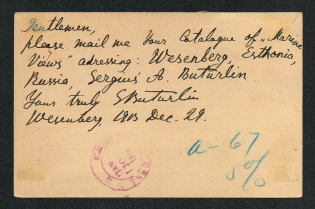 Gentlemen,
please mail me Your Catalogue of „Marine
Views" adressing: Wesenberg, Esthonia,
Russia, Sergius A. Buturlin
Your truly SButurlin
Wesenberg 1903 Dec. 29.
a-67
5%